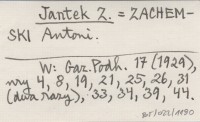 Jantek Z. = ZACHEM-
SKI Antoni.
W: Gaz. Podh. 17 (1929),
nry 4, 8, 19, 21, 25, 26, 31
(dwa razy), 33, 34, 39, 44.
BJ/422/1190